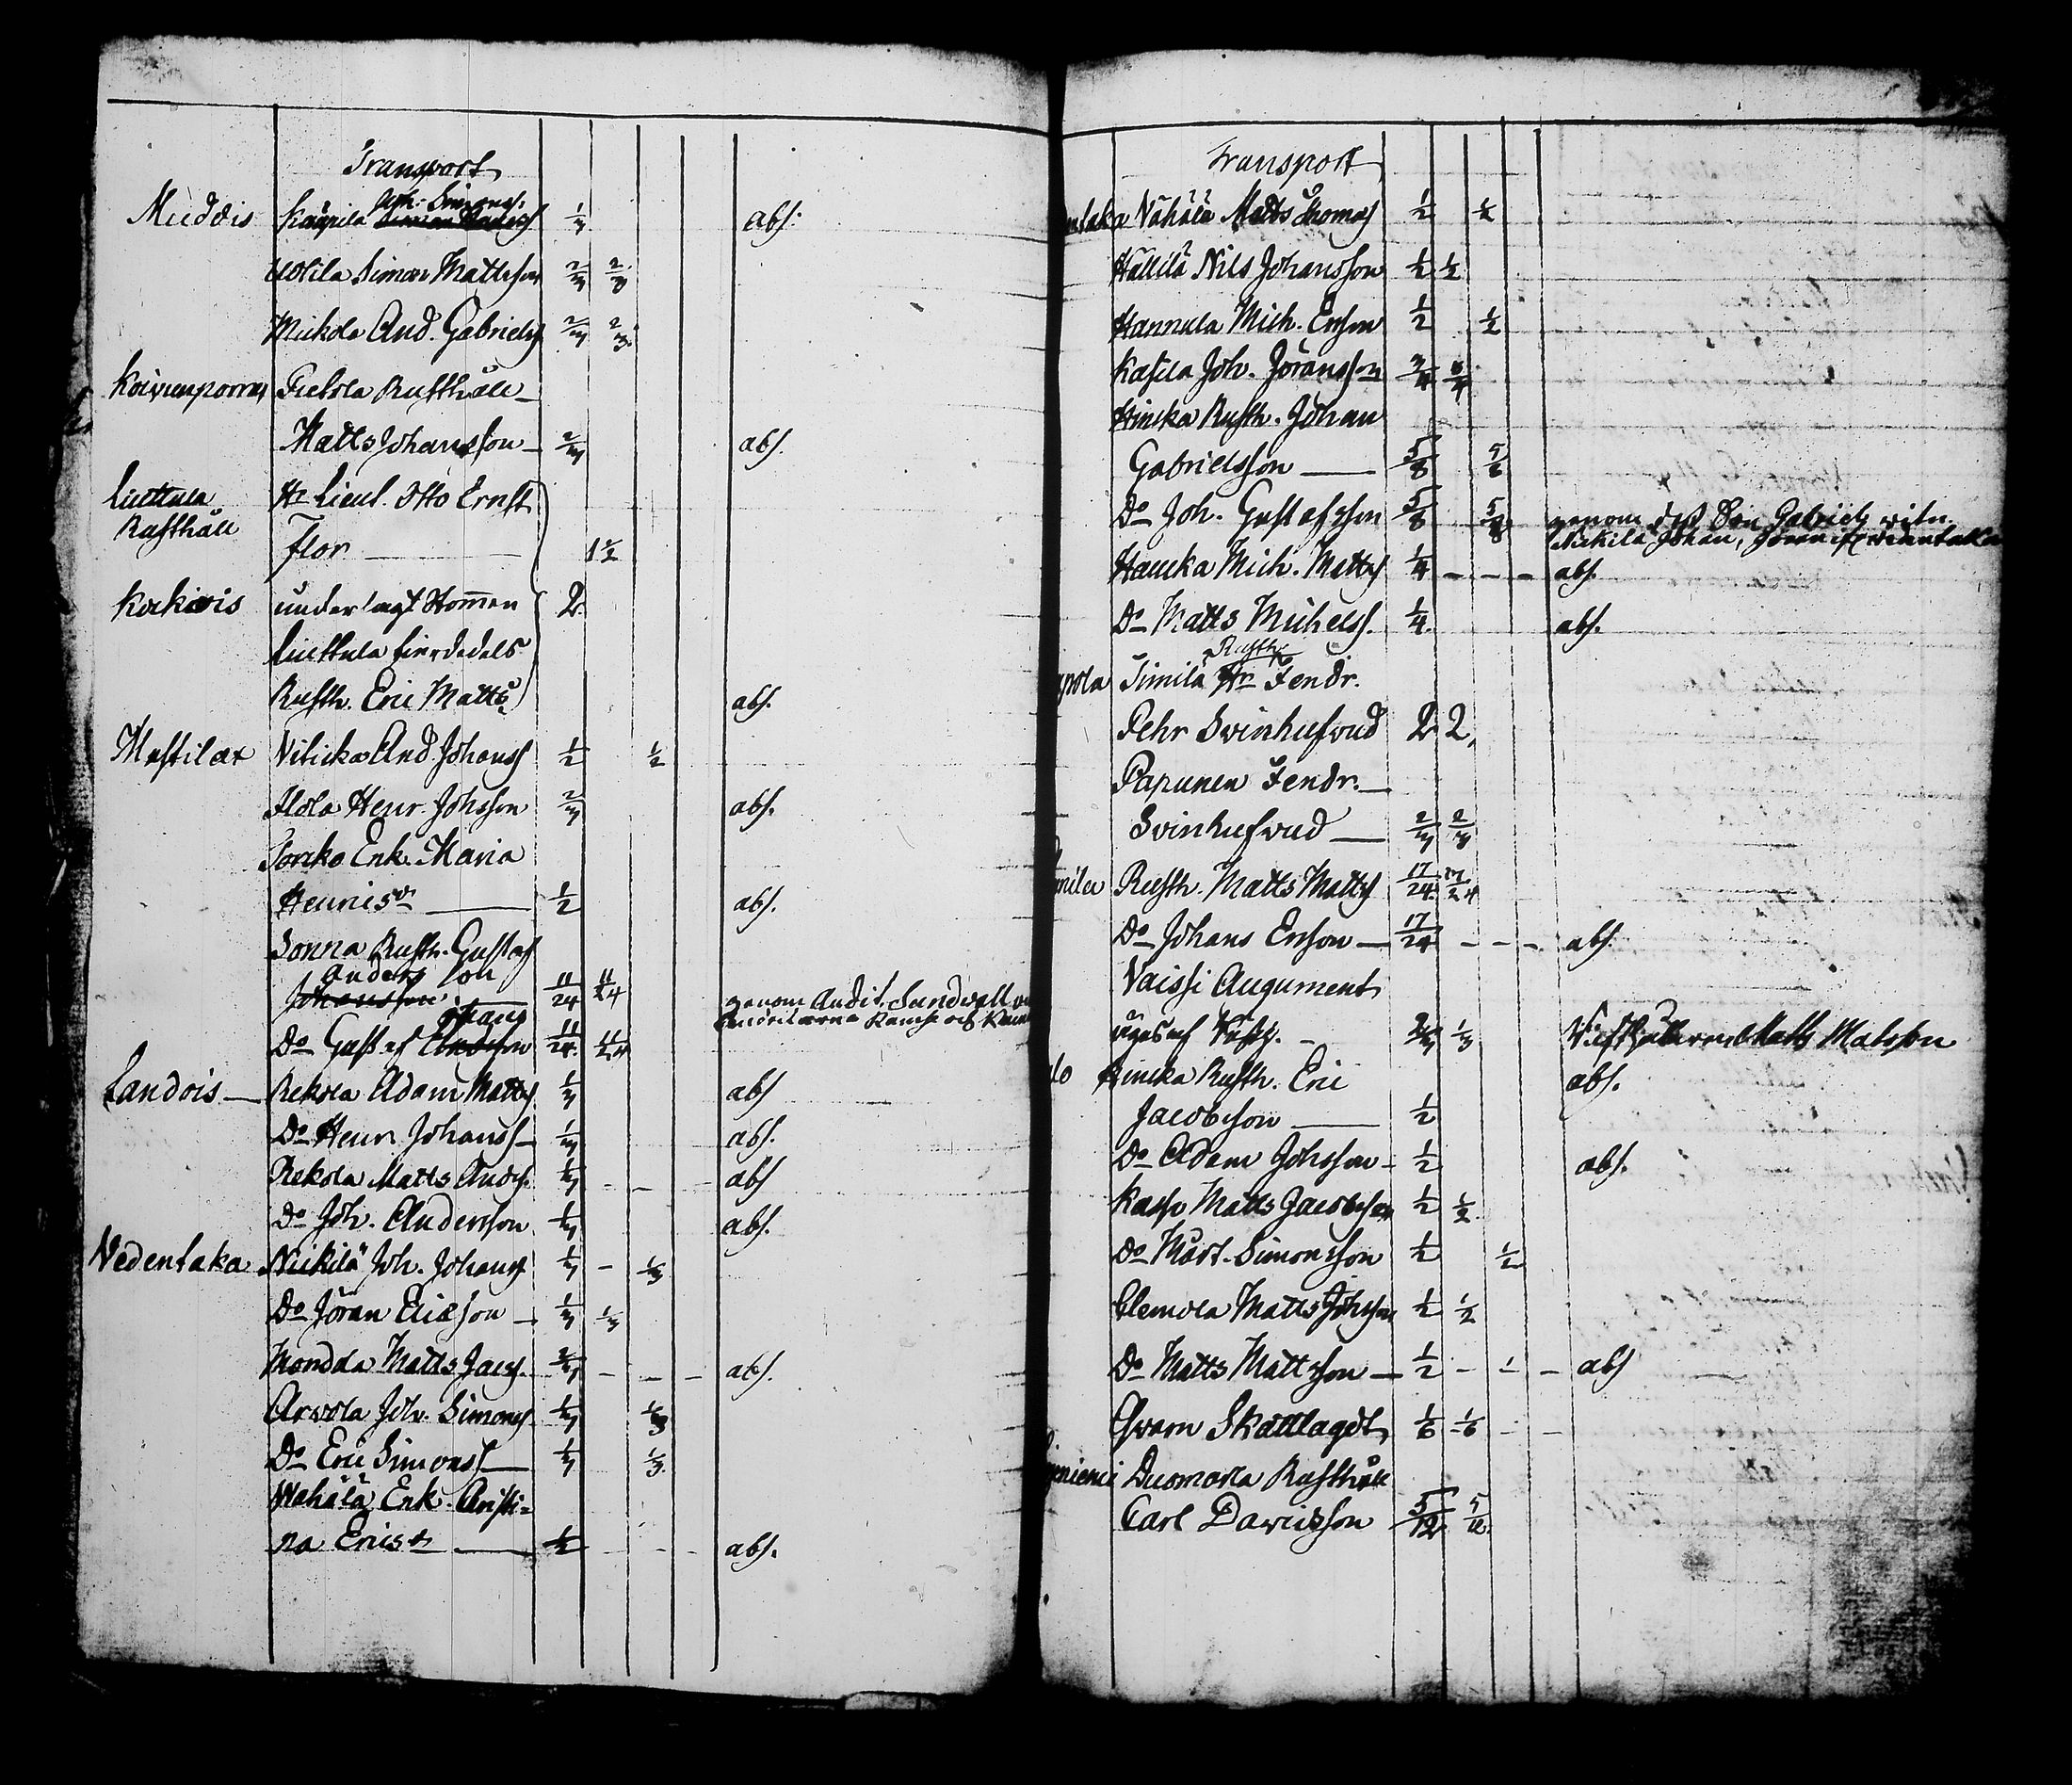 Transport
Muddis Kaupila Joh. Simonss. 1/3 abs:
Uotila Simon Mattsson 2/3 2/3
Mickola And. Gabrielss 2/3 2/3
Koivunporras Piekola Rusthåll
Matts Johansson 2/3 abs.
Liuttula Hr Lieut. Otto Ernst
Rusthåll Flor 1 1/2
Kakois underlagt Hemmen 2
Liuttula fierdedels
Rusth. Eric Matts. abs.
Mestilax And. Johanss 1/2 1/2
Ilola Henr. Johsson 2/3 abs.
Enk. Maria
Henrisdr 1/2 abs.
Sonna Rusth. Gustaf
Anders son
Johansson 11/24 11/24 genom Audit. Sundwall
Do Gustaf 11/24 11/24
Landois Rekola Adam Matts 1/3 abs
Do Henr Johanss 1/3 abs.
Rekola Matts Anders. 1/3 - - abs
Do Joh. Andersson 1/3 abs.
Vedentaka Nickilä Joh. Johanss 1/3 - 1/3
Do Jöran Ericsson 1/3 1/3
Matts Jacs. 2/3 - - - abs.
Arvola Joh. Simonss 1/3 1/3
Do Eric Simonss 1/3 1/3
Wähälä Enk. Christi=
na Ericsdr 1/2 abs.
Transport
Vähälä Matts Thomass 1/2 1/2
Hällilä Nils Johansson 1/2 1/2
Hannula Mich. Ersson 1/2 1/2
Kasila Joh. Jöransson 3/4 3/4
Rusth. Johan
Gabrielsson 5/8 5/8
Do Joh. Gustafsson 5/8 5/8 genom dess Son Gabriel, witn.
Nickilä Johan,
Haucka Mich. Matts 1/4 - - - abs.
Do Matts Michelss. 1/4 abs.
Rusth
Simila Hr Fendr.
Pehr Svinhufvud 2 2,
Papunen Fendr.
Svinhufvud 2/3 2/3
Rusth. Matts Matts 17/24 17/24
Do Johans Ersson 17/24 - - - abs.
Vaissi Augument
2/3 1/3 Matts Matsson
Rusth. Eric abs.
Jacobsson 1/2
Do Adam Johsson 1/2 abs.
Matts Jacobsson 1/2 1/2
Do Mårt. Simonsson 1/2 1/2
Clemola Matts Johsson 1/2 1/2
Do Matts Mattsson 1/2 - - - abs
Qvarn Skattlagdt 1/6 1/6 - -
Duomola Rusthåll
Carl Davidsson 5/12 5/12